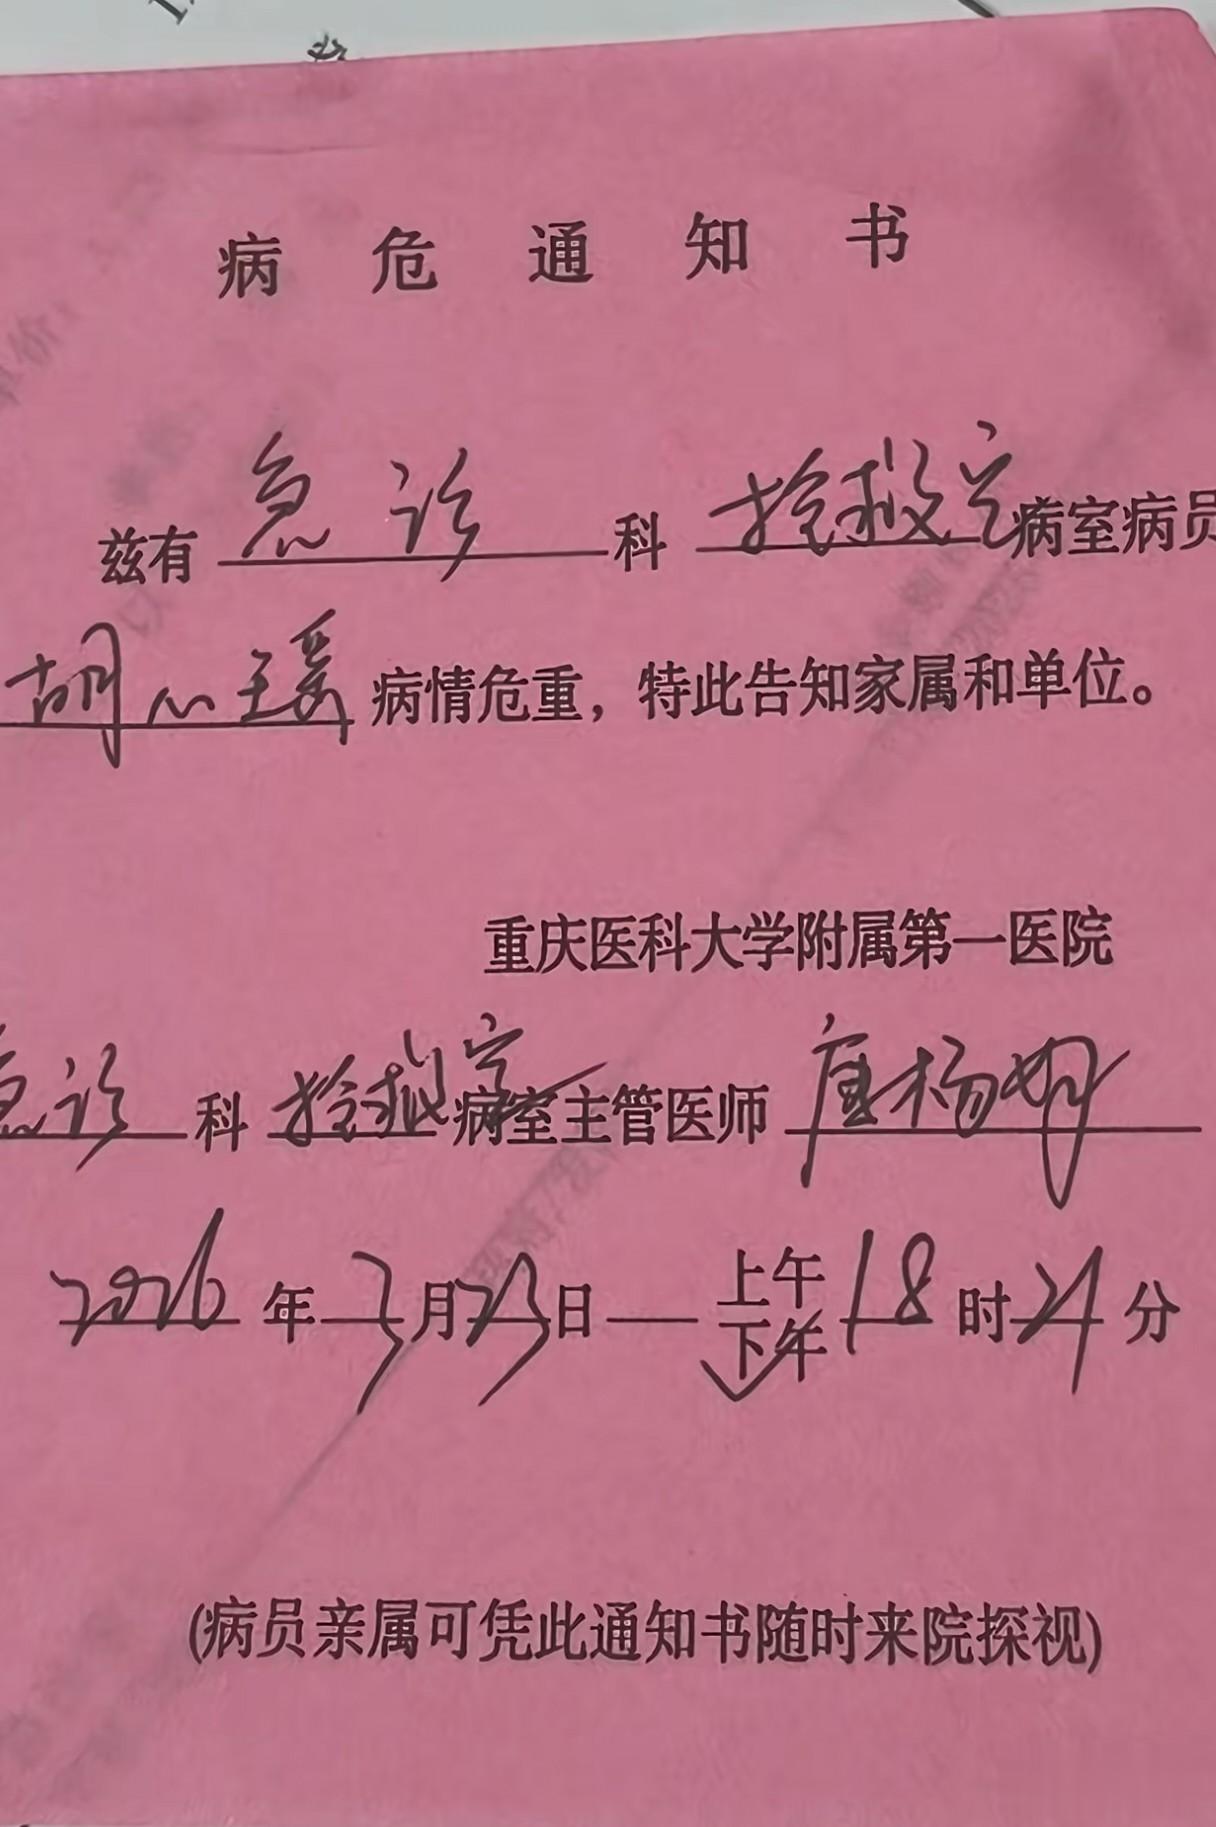 病危通知书
兹有 急诊 科 抢救室 病室病员
胡心瑗 病情危重，特此告知家属和单位。
重庆医科大学附属第一医院
急诊 科 抢救室 病室主管医师 唐杨
2026 年 3 月 23 日 上午
下午 18 时 21 分
(病员亲属可凭此通知书随时来院探视)